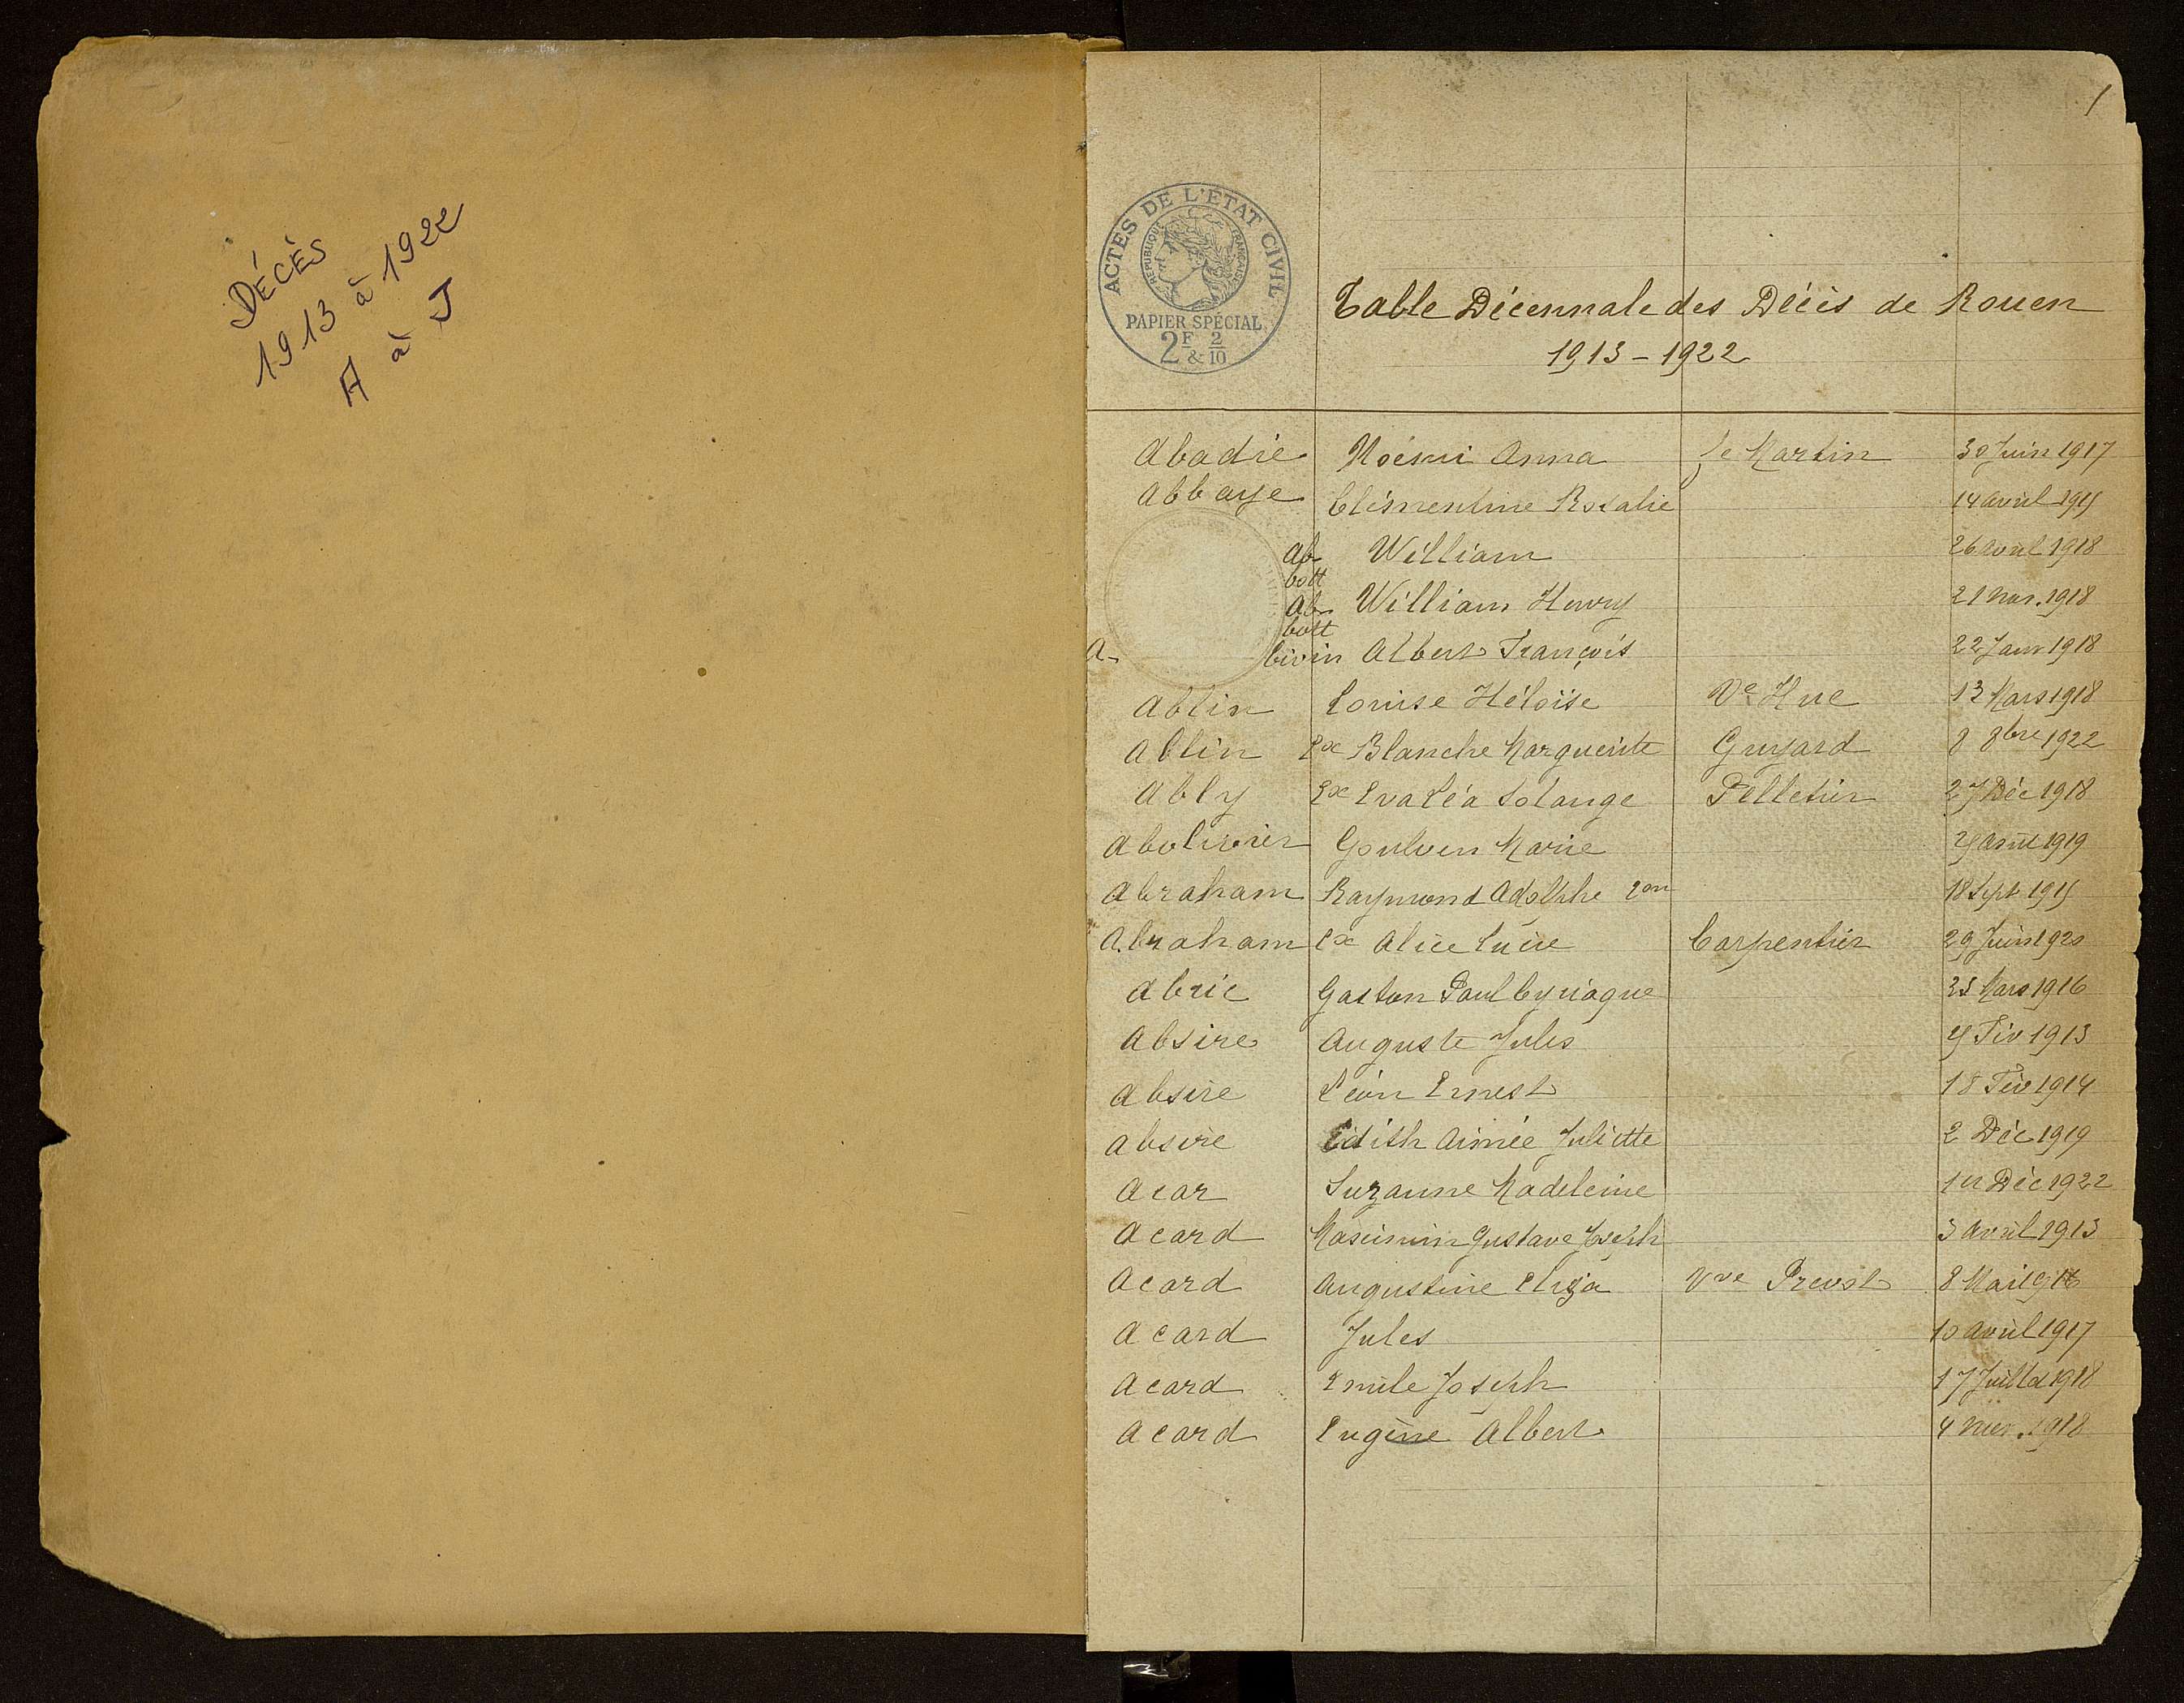 DÉCÈS
1913 à 1922
A à J
1
ACTES DE L'ÉTAT CIVIL
RÉPUBLIQUE FRANÇAISE
PAPIER SPÉCIAL
2F & 2/10
Table Décennale des Décès de Rouen
1913-1922
Abadie Noémi Anna fe Martin 30 Juin 1917
Abbaye Clémentine Rosalie 14 avril 1915
Abbott William 26 avril 1918
Abbott William Henry 21 nov. 1918
A-bivin Albert François 22 Janv 1918
Ablin Louise Héloïse Ve Hue 13 Mars 1918
Ablin Ex Blanche Marguerite Guyard 8 8bre 1922
Ably Ex Eva Léa Solange Pelletier 27 Déc 1918
Abolivier Goulven Marie août 1919
Abraham Raymond Adolphe Léon 18 Sept 1915
Abraham Ex Alice Lucie Carpentier 29 Juin 1920
Abric Gaston Paul Cyriaque 25 Mars 1916
Absire Auguste Jules Fév 1913
Absire Léon Ernest 18 Fév 1914
Absire Edith Aimée Juliette 2 Déc 1919
Acar Suzanne Madeleine 1er Déc 1922
Acard Maximin Gustave Joseph 3 avril 1913
Acard Augustine Eliza Vve Prevost 8 Mai 1916
Acard Jules 10 avril 1917
Acard Emile Joseph 17 Juillet 1918
Acard Eugène Albert 4 nov. 1918